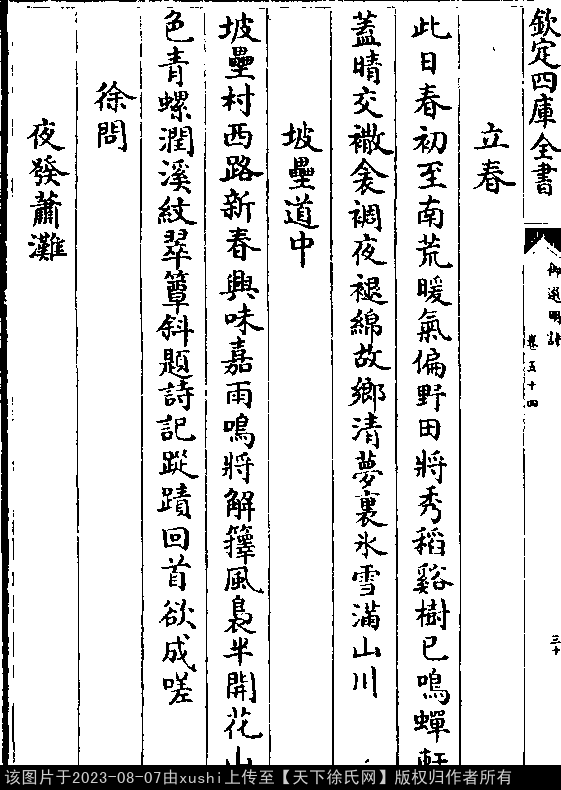 欽定四庫全書
御選明詩
卷五十四
三十
立春
此日春初至南荒暖氣偏野田將秀稻谿樹已鳴蟬軒
蓋晴交襒衾裯夜褪綿故鄉清夢裏氷雪滿山川
坡壘道中
坡壘村西路新春興味嘉雨鳴將解籜風裊半開花山
色青螺潤溪紋翠簟斜題詩記蹤蹟回首欲成嗟
徐問
夜發蕭灘
该图片于2023-08-07由xushi上传至【天下徐氏网】版权归作者所有